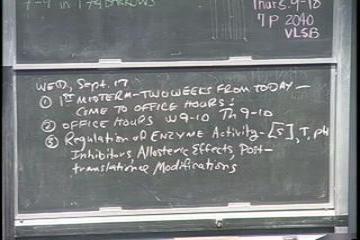 7-9 in 179 BARROWS
Thurs. 9-18
7P 2040
VLSB
WED, Sept. 17
① 1ST MIDTERM-TWO WEEKS FROM TODAY-
COME TO OFFICE HOURS!
② OFFICE HOURS W 9-10 Th 9-10
③ Regulation of ENZYME Activity-[S], T, pH
Inhibitors, Allosteric Effects, Post-
translational Modifications